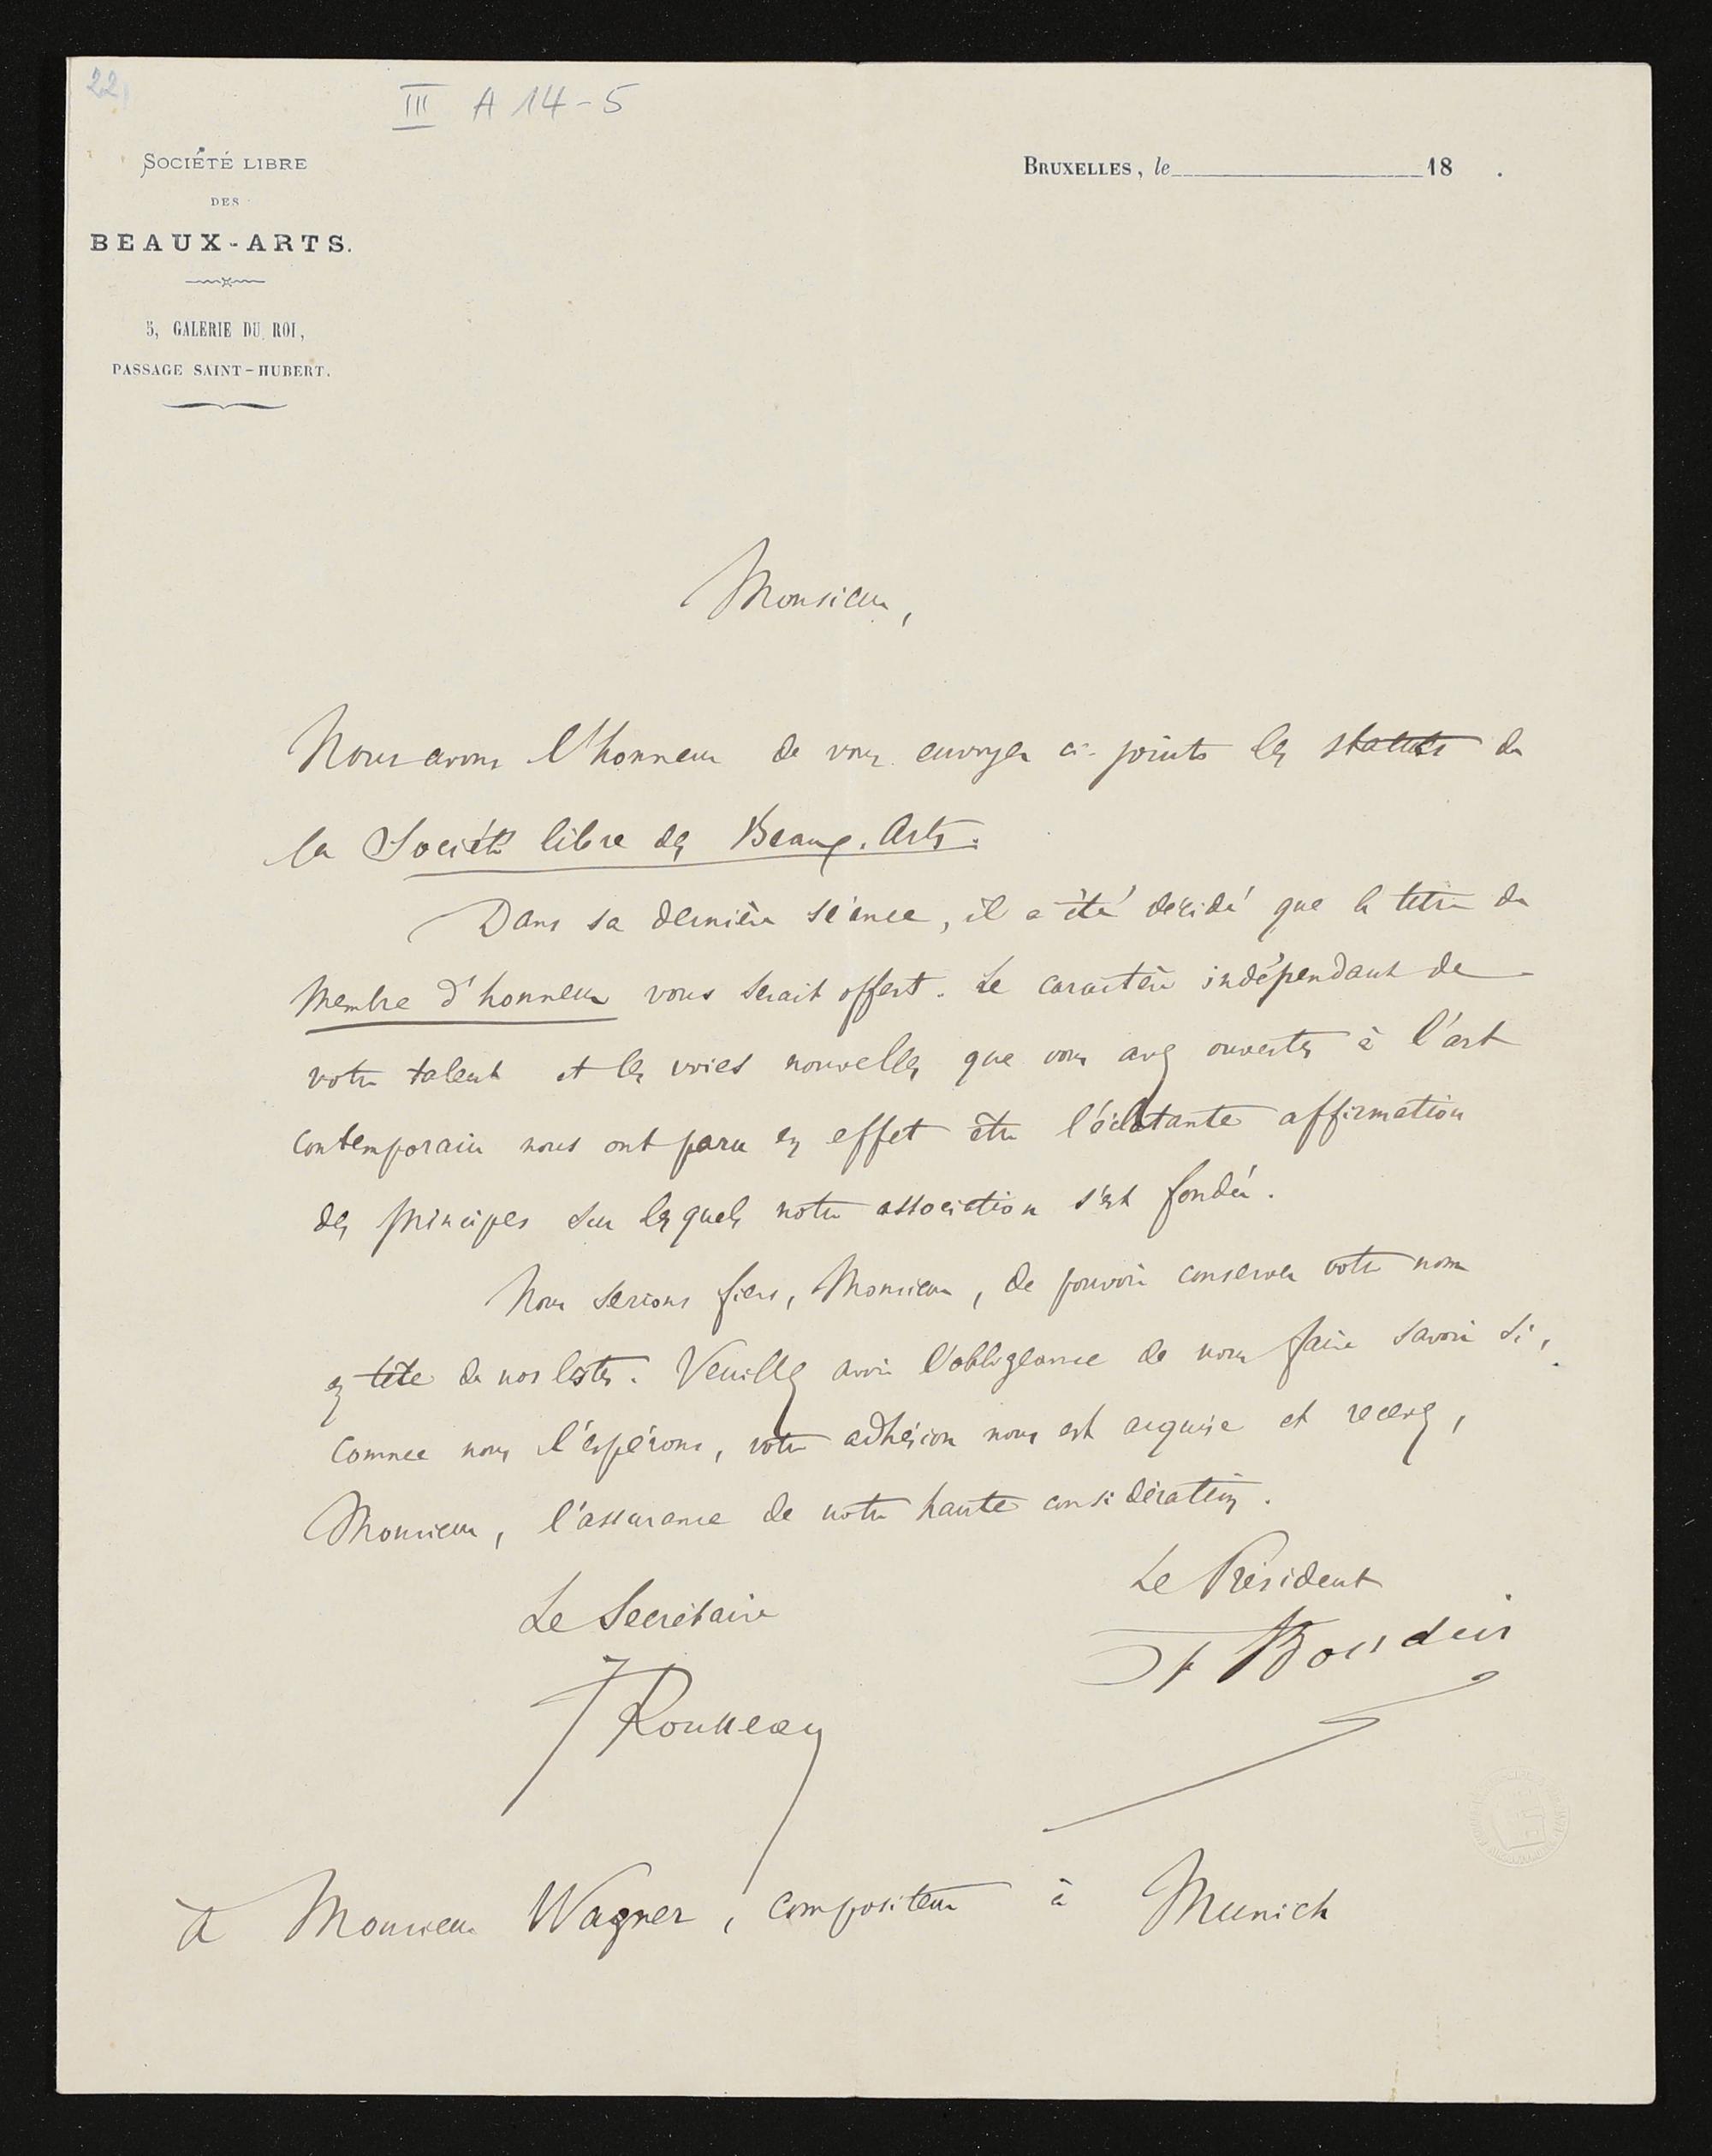 22
III A 14-5
SOCIÉTÉ LIBRE
DES
BEAUX-ARTS.
5, GALERIE DU ROI,
PASSAGE SAINT-HUBERT.
BRUXELLES, le 18 .
Monsieur,
Nous avons l'honneur de vous envoyer ci-joints les statuts de
la Société libre des Beaux-Arts.
Dans sa dernière séance, il a été décidé que le titre de
Membre d'honneur vous serait offert. Le caractère indépendant de
votre talent et les voies nouvelles que vous avez ouvertes à l'art
contemporain nous ont paru en effet être l'éclatante affirmation
des principes sur lesquels notre association s'est fondée.
Nous serions fiers, Monsieur, de pouvoir conserver votre nom
en tête de nos listes. Veuillez avoir l'obligeance de nous faire savoir si,
comme nous l'espérons, votre adhésion nous est acquise et recevez,
Monsieur, l'assurance de notre haute considération.
Le Président
Le Secrétaire
J Rousseau
A Monsieur Wagner, compositeur à Munich